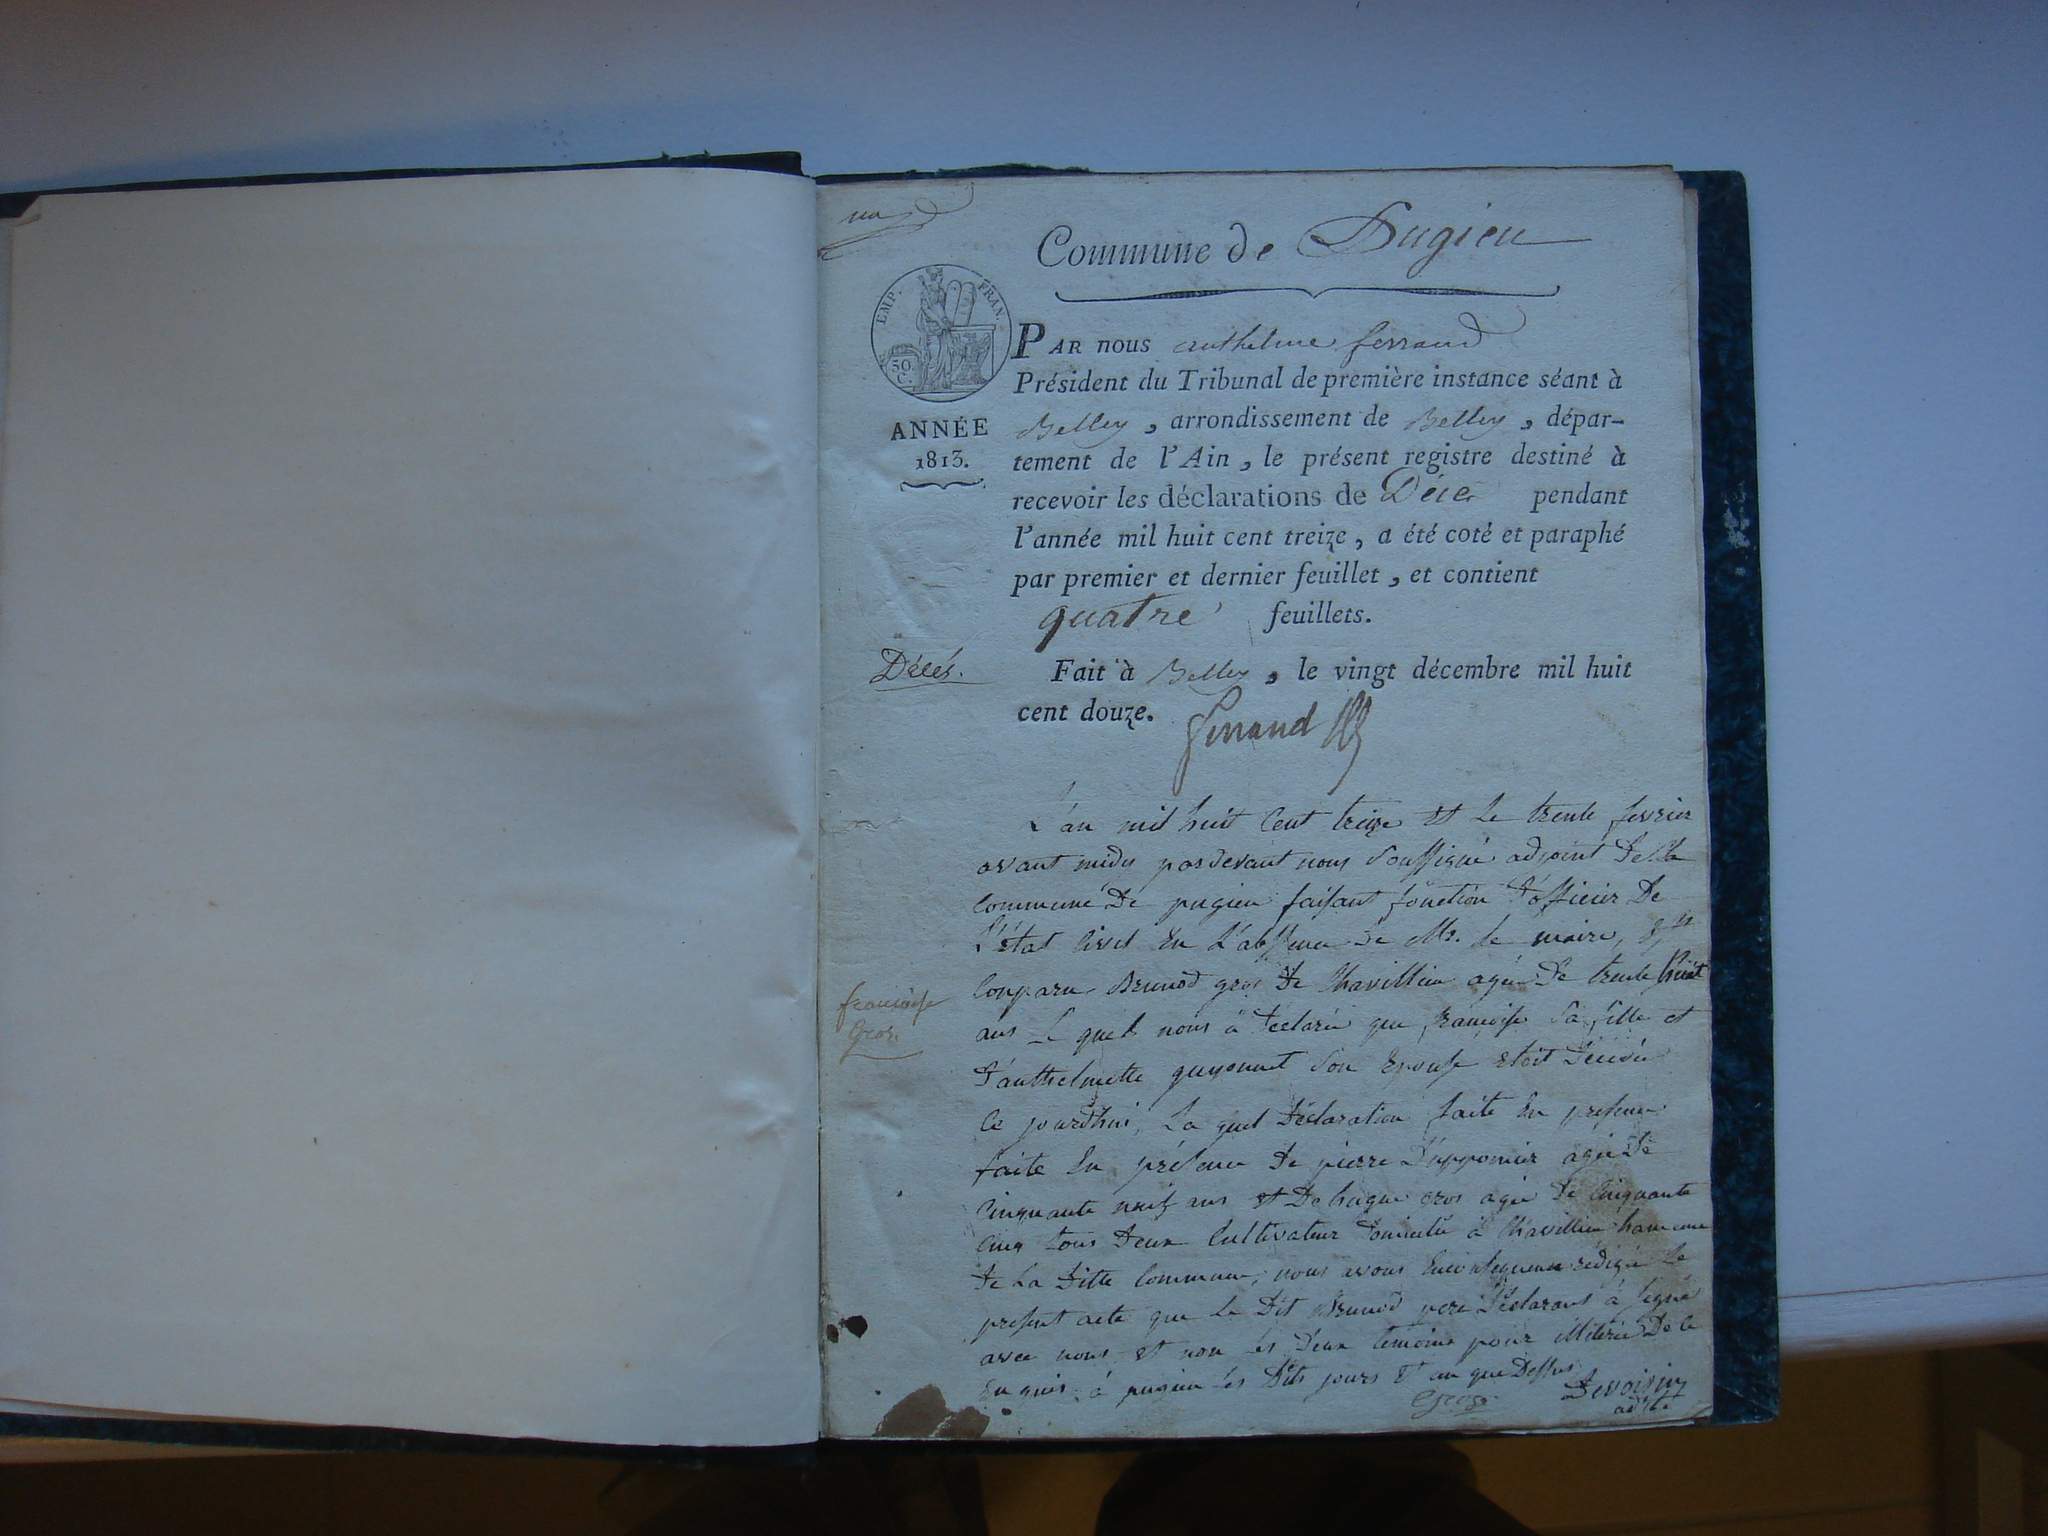 Commune de Pugieu
EMP. FRAN.
50.
C.
ANNÉE
1813.
PAR nous anthelme ferrand
Président du Tribunal de première instance séant à
Belley, arrondissement de Belley, dépar-
tement de l'Ain, le présent registre destiné à
recevoir les déclarations de Décès pendant
l'année mil huit cent treize, a été coté et paraphé
par premier et dernier feuillet, et contient
quatre feuillets.
Décés.
Fait à Belley, le vingt décembre mil huit
cent douze.
ferrand
L'an mil huit Cent treize et le trente fevrier
avant midy pardevant nous Soussigné adjoint De la
Commune De pugieu faisant fonction D'officier De
L'état Civil En L'absence De Mr. le maire,
Comparu Brunod gros De Chavillieu agé De trente huit
françoise
Gros.
ans Le quel nous a Declaré que françoise Sa fille et
D'anthelmette guyonnet Son Epouse etoit Décédée
Ce jourdhui, La quel Déclaration faite En presence
faite En présence De pierre Dupponier agé De
Cinquante neuf ans et De hugue gros agé De Cinquante
Cinq tous Deux Cultivateur Domicilié à Chavillieu hameau
De La Ditte Commune, nous avons Enconsequence rédigé Le
présent acte que Le Dit Brunod pere Déclarant à signé
avec nous et non Les Deux temoins pour illiteré De Ce
Enquis à pugieu Les Dits jours et an que Dessus
Gros
Devoisin
adjt.